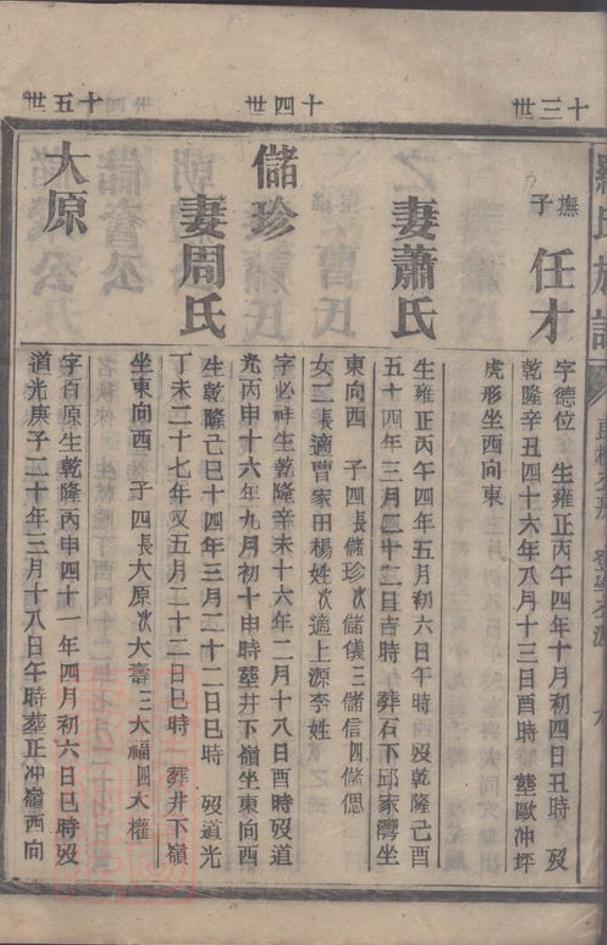 羅氏族譜
十三世
撫子 任才
字德位 生雍正丙午四年十月初四日丑時 歿
乾隆辛丑四十六年八月十三日酉時 塟歐冲坪
虎形坐西向東
妻蕭氏
生雍正丙午四年五月初六日午時 歿乾隆己酉
五十四年三月二十二日吉時 葬石下邱家灣坐
東向西 子四長儲珍次儲儀三儲信四儲偲
女二長適曹家田楊姓次適上源李姓
十四世
儲珍
字必祥生乾隆辛未十六年二月十八日酉時歿道
光丙申十六年九月初十申時塟井下嶺坐東向西
妻周氏
生乾隆己巳十四年三月二十二日巳時 歿道光
丁未二十七年又五月二十二日巳時 葬井下嶺
坐東向西 子四長大原次大壽三大福四大權
十五世
大原
字百原生乾隆丙申四十一年四月初六日巳時歿
道光庚子二十年三月十八日午時葬正冲嶺西向